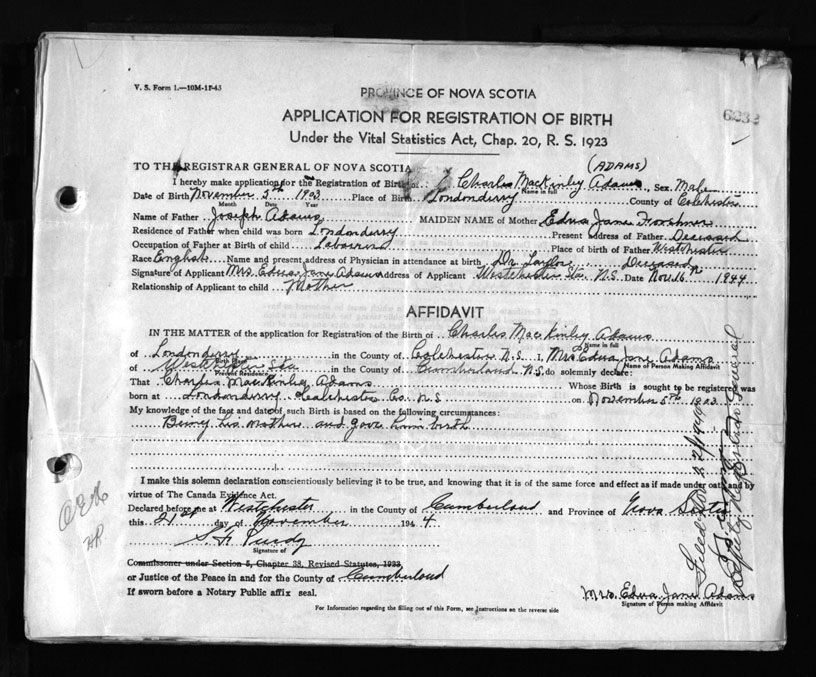 V. S. Form 1.—10M-11-43
PROVINCE OF NOVA SCOTIA
6232
APPLICATION FOR REGISTRATION OF BIRTH
Under the Vital Statistics Act, Chap. 20, R. S. 1923
(ADAMS)
TO THE REGISTRAR GENERAL OF NOVA SCOTIA
I hereby make application for the Registration of Birth of Charles MacKinley Adams, Sex. Male
Name in full
Date of Birth November 5th 1903 Place of Birth Londonderry County of Colchester
Month Date Year
Name of Father Joseph Adams MAIDEN NAME of Mother Edna Jane
Residence of Father when child was born Londonderry Present address of Father Deceased
Occupation of Father at Birth of child Labouring Place of Birth of Father Westchester
Race English Name and present address of Physician in attendance at birth Dr. Deceased
Signature of Applicant Mrs. Edna Jane Adams Address of Applicant Westchester Sta. N.S. Date Nov. 16 1944
Relationship of Applicant to child Mother
AFFIDAVIT
IN THE MATTER of the application for Registration of the Birth of Charles MacKinley Adams
Name in full
of Londonderry in the County of Colchester N.S. I, Mrs Edna Jane Adams
Birth Place Name of Person Making Affidavit
of Westchester Sta in the County of Cumberland N.S. do solemnly declare:
Present Residence
That Charles MacKinley Adams Whose Birth is sought to be registered was
born at Londonderry Colchester Co. N.S on November 5th 1903
My knowledge of the fact and date of such Birth is based on the following circumstances:
Being his mother and gave him birth
I make this solemn declaration conscientiously believing it to be true, and knowing that it is of the same force and effect as if made under oath and by
virtue of The Canada Evidence Act.
Declared before me at Westchester in the County of Cumberland and Province of Nova Scotia
this 21st day of November 1944
Purdy
Signature of
Commissioner under Section 5, Chapter 38, Revised Statutes, 1923,
or Justice of the Peace in and for the County of Cumberland
If sworn before a Notary Public affix seal.
Mrs. Edna Jane Adams
Signature of Person making Affidavit
For Information regarding the filling out of this Form, see Instructions on the reverse side
Deputy Registrar General